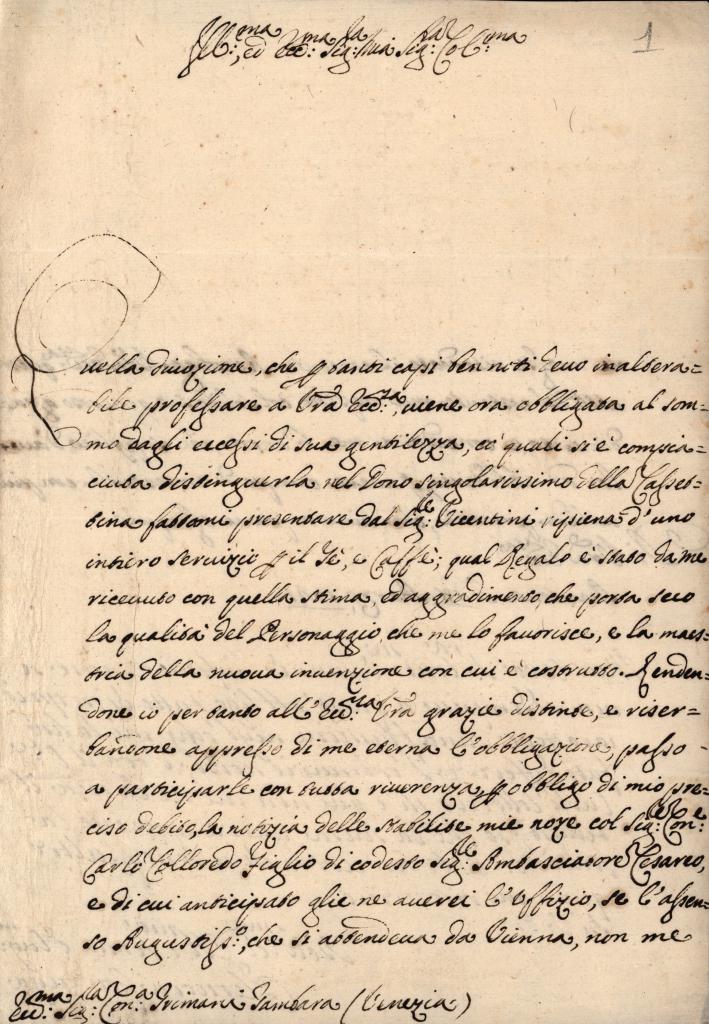 Ill:ma, ed Ecc:ma Sig:ra mia Sig:ra Col:ma
1
Quella divozione, che p tanti capi ben noti devo inaltera=
bile professare a Vrã Ecc:za, viene ora obbligata al som=
mo dagli eccessi di sua gentilezza, co' quali si è compia=
ciuta distinguerla nel Dono singolarissimo della Casset=
tina fattami presentare dal Sig:re Vicentini ripiena d'uno
intiero servizio p il Tè, e Caffè; qual Regalo è stato da me
ricevuto con quella stima, ed aggradimento, che porta seco
la qualità del Personaggio, che me lo favorisce, e la maes=
tria della nuova invenzione con cui è costrutto. Renden=
done io per tanto all'Ecc:za Vrã grazie distinte, e riser=
bandone appresso di me eterna l'obbligazione, passo
a participarle con tutta riverenza, p obbligo di mio pre=
ciso debito, la notizia delle stabilite mie noze col Sig:re Con:e
Carlo Colloredo Figlio di codesto Sig:re Ambasciatore Cesareo,
e di cui anticipato glie ne averei l'Offizio, se l'assen=
so Augustiss:o, che si attendeva da Vienna, non me
Ecc:ma Sig:ra Con:a Grimani Gambara (Venezia)